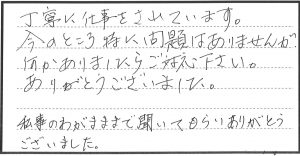 丁寧に仕事をされています。
今のところ特に問題はありませんが
何かありましたらご対応下さい。
ありがとうございました。
私事のわがままで聞いてもらいありがとう
ございました。